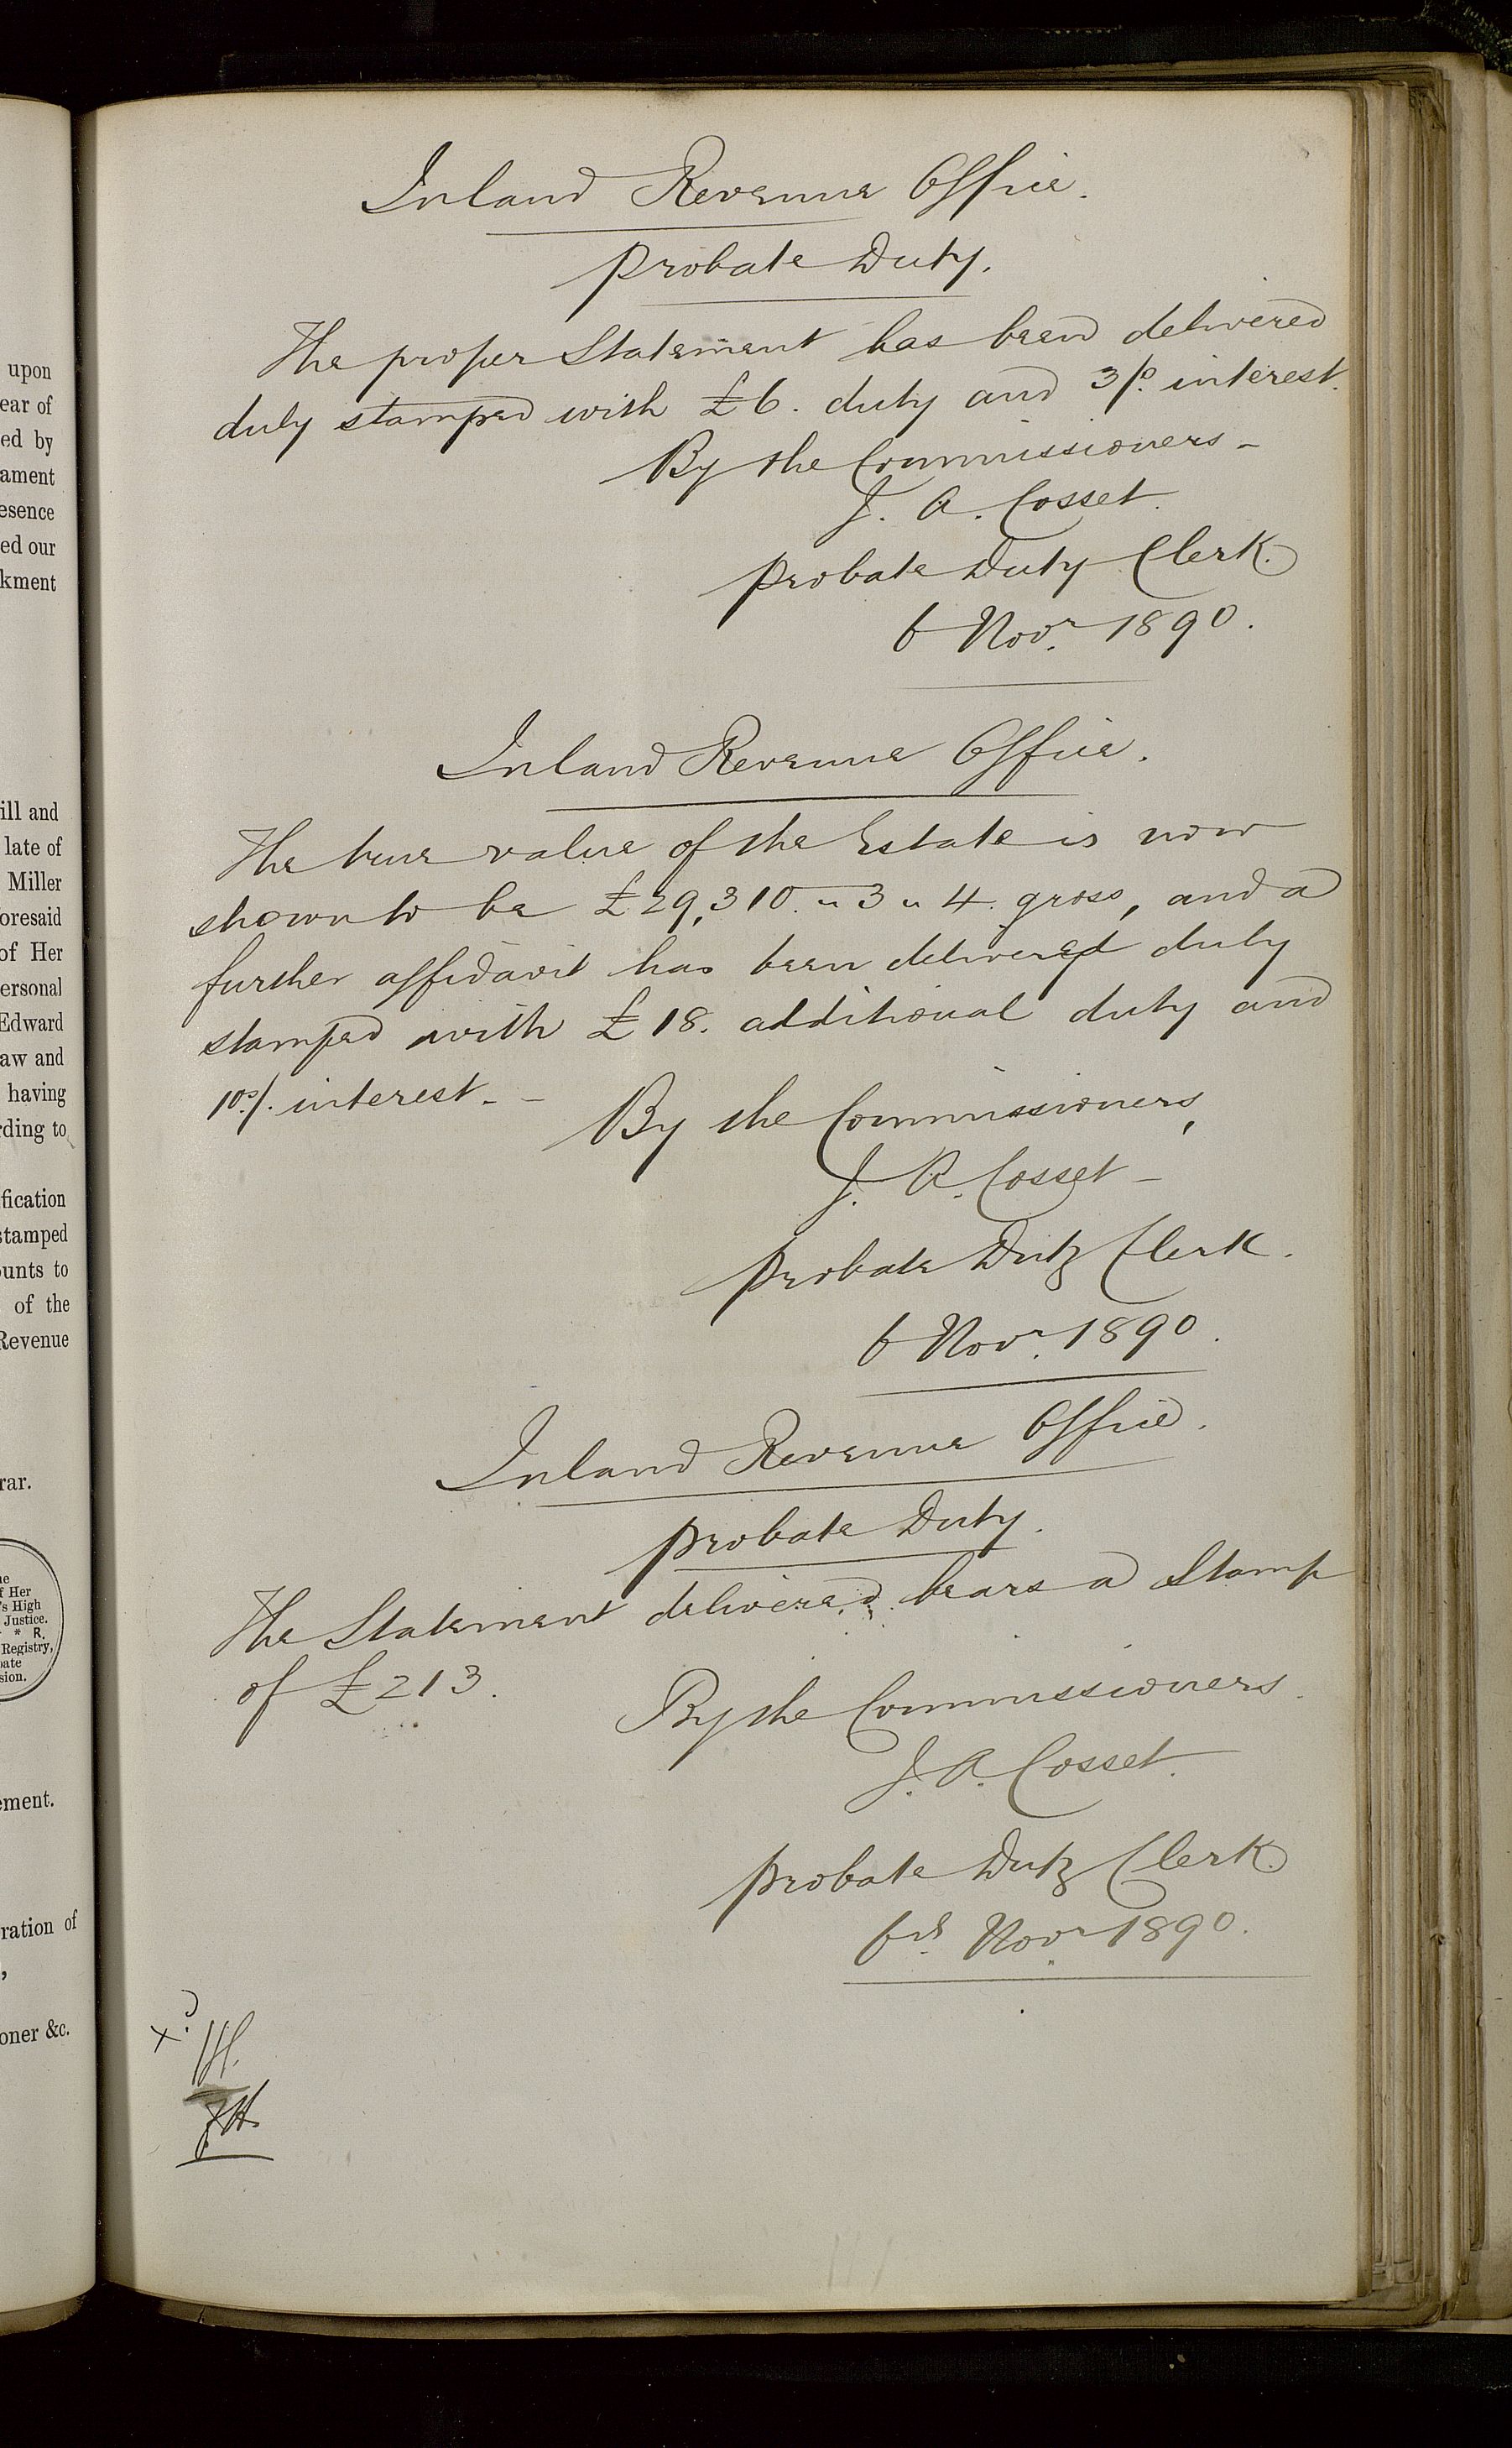 upon
ear of
ed by
ament
esence
ed our
kment
ill and
late of
Miller
oresaid
of Her
ersonal
Edward
aw and
having
rding to
fication
stamped
ounts to
of the
Revenue
rar.
he
f Her
's High
Justice.
* R.
Registry,
bate
sion.
ement.
ration of
,
oner &c.
Inland Revenue Office.
Probate Duty.
The proper Statement has been delivered
duly stamped with £6. duty and 3/. interest.
By the Commissioners -
J. A. Cosset.
Probate Duty Clerk.
6 Novr. 1890.
Inland Revenue Office.
The true value of the Estate is now
shown to be £29,310. " 3 " 4. gross, and a
further affidavit has been delivered duly
stamped with £18. additional duty and
10s/. interest. -
By the Commissioners,
J. A. Cosset -
Probate Duty Clerk.
6 Novr. 1890.
Inland Revenue Office.
Probate Duty.
The Statement delivered bears a Stamp
of £213.
By the Commissioners.
J. A. Cosset.
Probate Duty Clerk.
6th Novr. 1890.